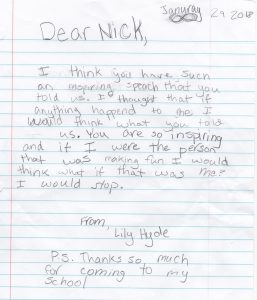 Januray 29 2018
Dear Nick,
I think you have such
an inspiring speach that you
told us. I thought that if
anything happend to me I
would think what you told
us. You are so inspiring
and if I were the person
that was making fun I would
think what if that was me?
I would stop.
From,
Lily Hyde
P.S. Thanks so, much
for coming to my
school